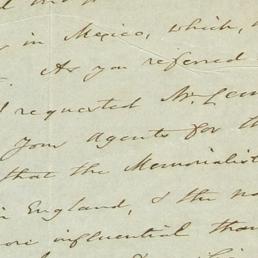 in Mexico, which,
As you referred
requested Mr. Lem
Your Agents for th
that the Memorialist
in England, & the na
ore influential than